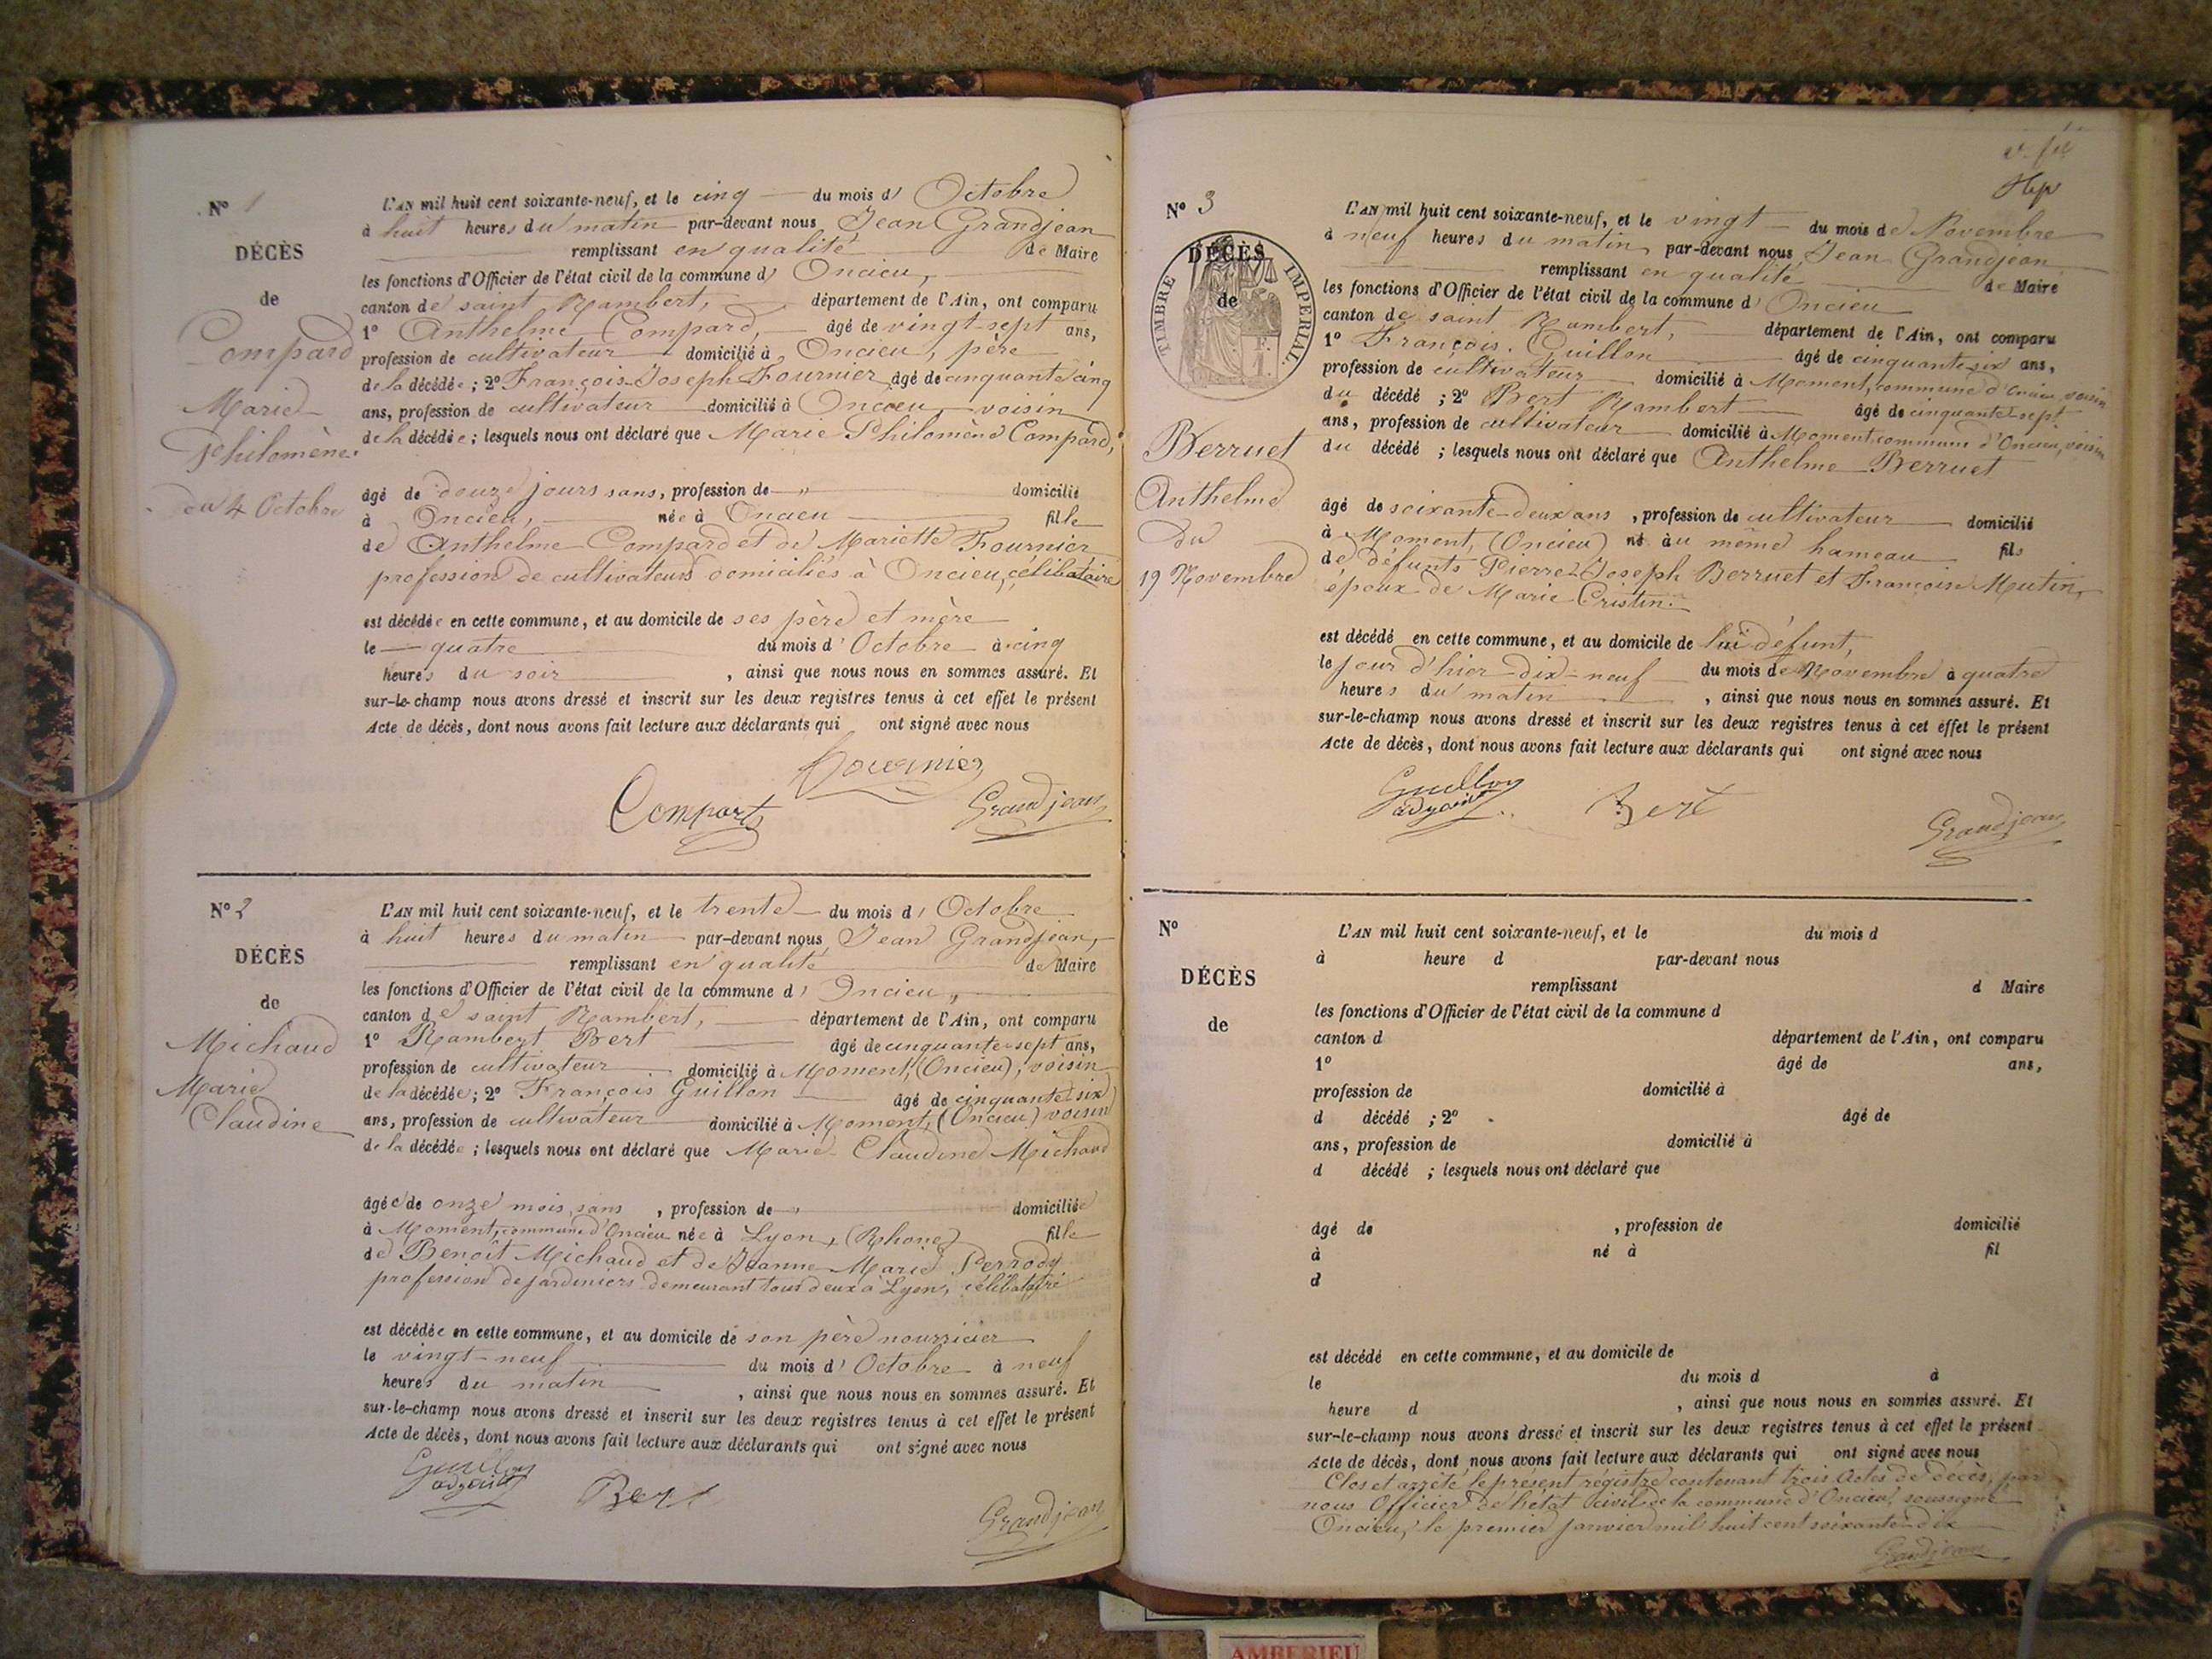 Nº 1
DÉCÈS
de
Compard
Marie
Philomène
du 4 Octobre
L'AN mil huit cent soixante-neuf, et le cinq du mois d' Octobre
à huit heures du matin par-devant nous Jean Grandjean
remplissant en qualité de Maire
les fonctions d'Officier de l'état civil de la commune d' Oncieu,
canton de saint Rambert, département de l'Ain, ont comparu
1º Anthelme Compard, âgé de vingt-sept ans,
profession de cultivateur domicilié à Oncieu, père
de la décédée ; 2º François-Joseph Fournier âgé de cinquante cinq
ans, profession de cultivateur domicilié à Oncieu, voisin
de la décédée ; lesquels nous ont déclaré que Marie Philomène Compard,
âgé de douze jours sans, profession de " domicilié
à Oncieu, née à Oncieu fille
de Anthelme Compard et de Mariette Fournier
profession de cultivateurs domiciliés à Oncieu, célibataire
est décédée en cette commune, et au domicile de ses père et mère
le quatre du mois d' Octobre à cinq
heures du soir , ainsi que nous nous en sommes assuré. Et
sur-le-champ nous avons dressé et inscrit sur les deux registres tenus à cet effet le présent
Acte de décès, dont nous avons fait lecture aux déclarants qui ont signé avec nous
Fournier
Compart
Grandjean
Nº 2
DÉCÈS
de
Michaud
Marie
Claudine
L'AN mil huit cent soixante-neuf, et le trente du mois d' Octobre
à huit heures du matin par-devant nous Jean Grandjean,
remplissant en qualité de Maire
les fonctions d'Officier de l'état civil de la commune d' Oncieu,
canton de saint Rambert, département de l'Ain, ont comparu
1º Rambert Bert âgé de cinquante-sept ans,
profession de cultivateur domicilié à Moment, (Oncieu), voisin
de la décédée ; 2º François Guillon âgé de cinquante six
ans, profession de cultivateur domicilié à Moment, (Oncieu) voisin
de la décédée ; lesquels nous ont déclaré que Marie Claudine Michaud
âgée de onze mois sans , profession de " domiciliée
à Moment, commune d'Oncieu née à Lyon, (Rhone) fille
de Benoît Michaud et de Jeanne Marie Perrody
profession de jardiniers demeurant tous deux à Lyon, célibataire
est décédée en cette commune, et au domicile de son père nourricier
le vingt-neuf du mois d' Octobre à neuf
heures du matin , ainsi que nous nous en sommes assuré. Et
sur-le-champ nous avons dressé et inscrit sur les deux registres tenus à cet effet le présent
Acte de décès, dont nous avons fait lecture aux déclarants qui ont signé avec nous
Guillon
adjoint
Bert
Grandjean
Nº 3
DÉCÈS
de
TIMBRE IMPÉRIAL.
Berruet
Anthelme
du
19 Novembre
L'AN mil huit cent soixante-neuf, et le vingt du mois de Novembre
à neuf heures du matin par-devant nous Jean Grandjean
remplissant en qualité de Maire
les fonctions d'Officier de l'état civil de la commune d' Oncieu
canton de saint Rambert, département de l'Ain, ont comparu
1º François Guillon âgé de cinquante-six ans,
profession de cultivateur domicilié à Moment, commune d'Oncieu, voisin
du décédé ; 2º Bert Rambert âgé de cinquante-sept
ans, profession de cultivateur domicilié à Moment, commune d'Oncieu, voisin
du décédé ; lesquels nous ont déclaré que Anthelme Berruet
âgé de soixante-deux ans , profession de cultivateur domicilié
à Moment, (Oncieu) né au même hameau fils
de défunts Pierre-Joseph Berruet et Françoise Mutin,
époux de Marie Cristin.
est décédé en cette commune, et au domicile de lui défunt,
le jour d'hier dix-neuf du mois de Novembre à quatre
heures du matin , ainsi que nous nous en sommes assuré. Et
sur-le-champ nous avons dressé et inscrit sur les deux registres tenus à cet effet le présent
Acte de décès, dont nous avons fait lecture aux déclarants qui ont signé avec nous
Guillon
adjoint
Bert
Grandjean
Nº
DÉCÈS
de
L'AN mil huit cent soixante-neuf, et le du mois d
à heure d par-devant nous
remplissant d Maire
les fonctions d'Officier de l'état civil de la commune d
canton d département de l'Ain, ont comparu
1º âgé de ans,
profession de domicilié à
d décédé ; 2º âgé de
ans, profession de domicilié à
d décédé ; lesquels nous ont déclaré que
âgé de , profession de domicilié
à né à fil
d
est décédé en cette commune, et au domicile de
le du mois d à
heure d , ainsi que nous nous en sommes assuré. Et
sur-le-champ nous avons dressé et inscrit sur les deux registres tenus à cet effet le présent
Acte de décès, dont nous avons fait lecture aux déclarants qui ont signé avec nous
Clos et arrêté le présent régistre contenant trois Actes de décès, par
nous Officier de l'état civil de la commune d'Oncieu, soussigné
Oncieu, le premier janvier mil huit cent soixante-dix
Grandjean
AMBERIEU